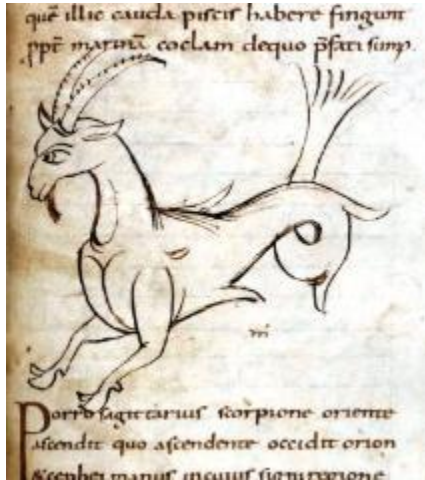 quē illic cauda piscis habere fingunt
ppt̄ marinā coclam dequo p̄fati sumꝰ.
Porro sagittarius scorpione oriente
ascendit quo ascendente occidit orion
&cephei manus incuius signi regione